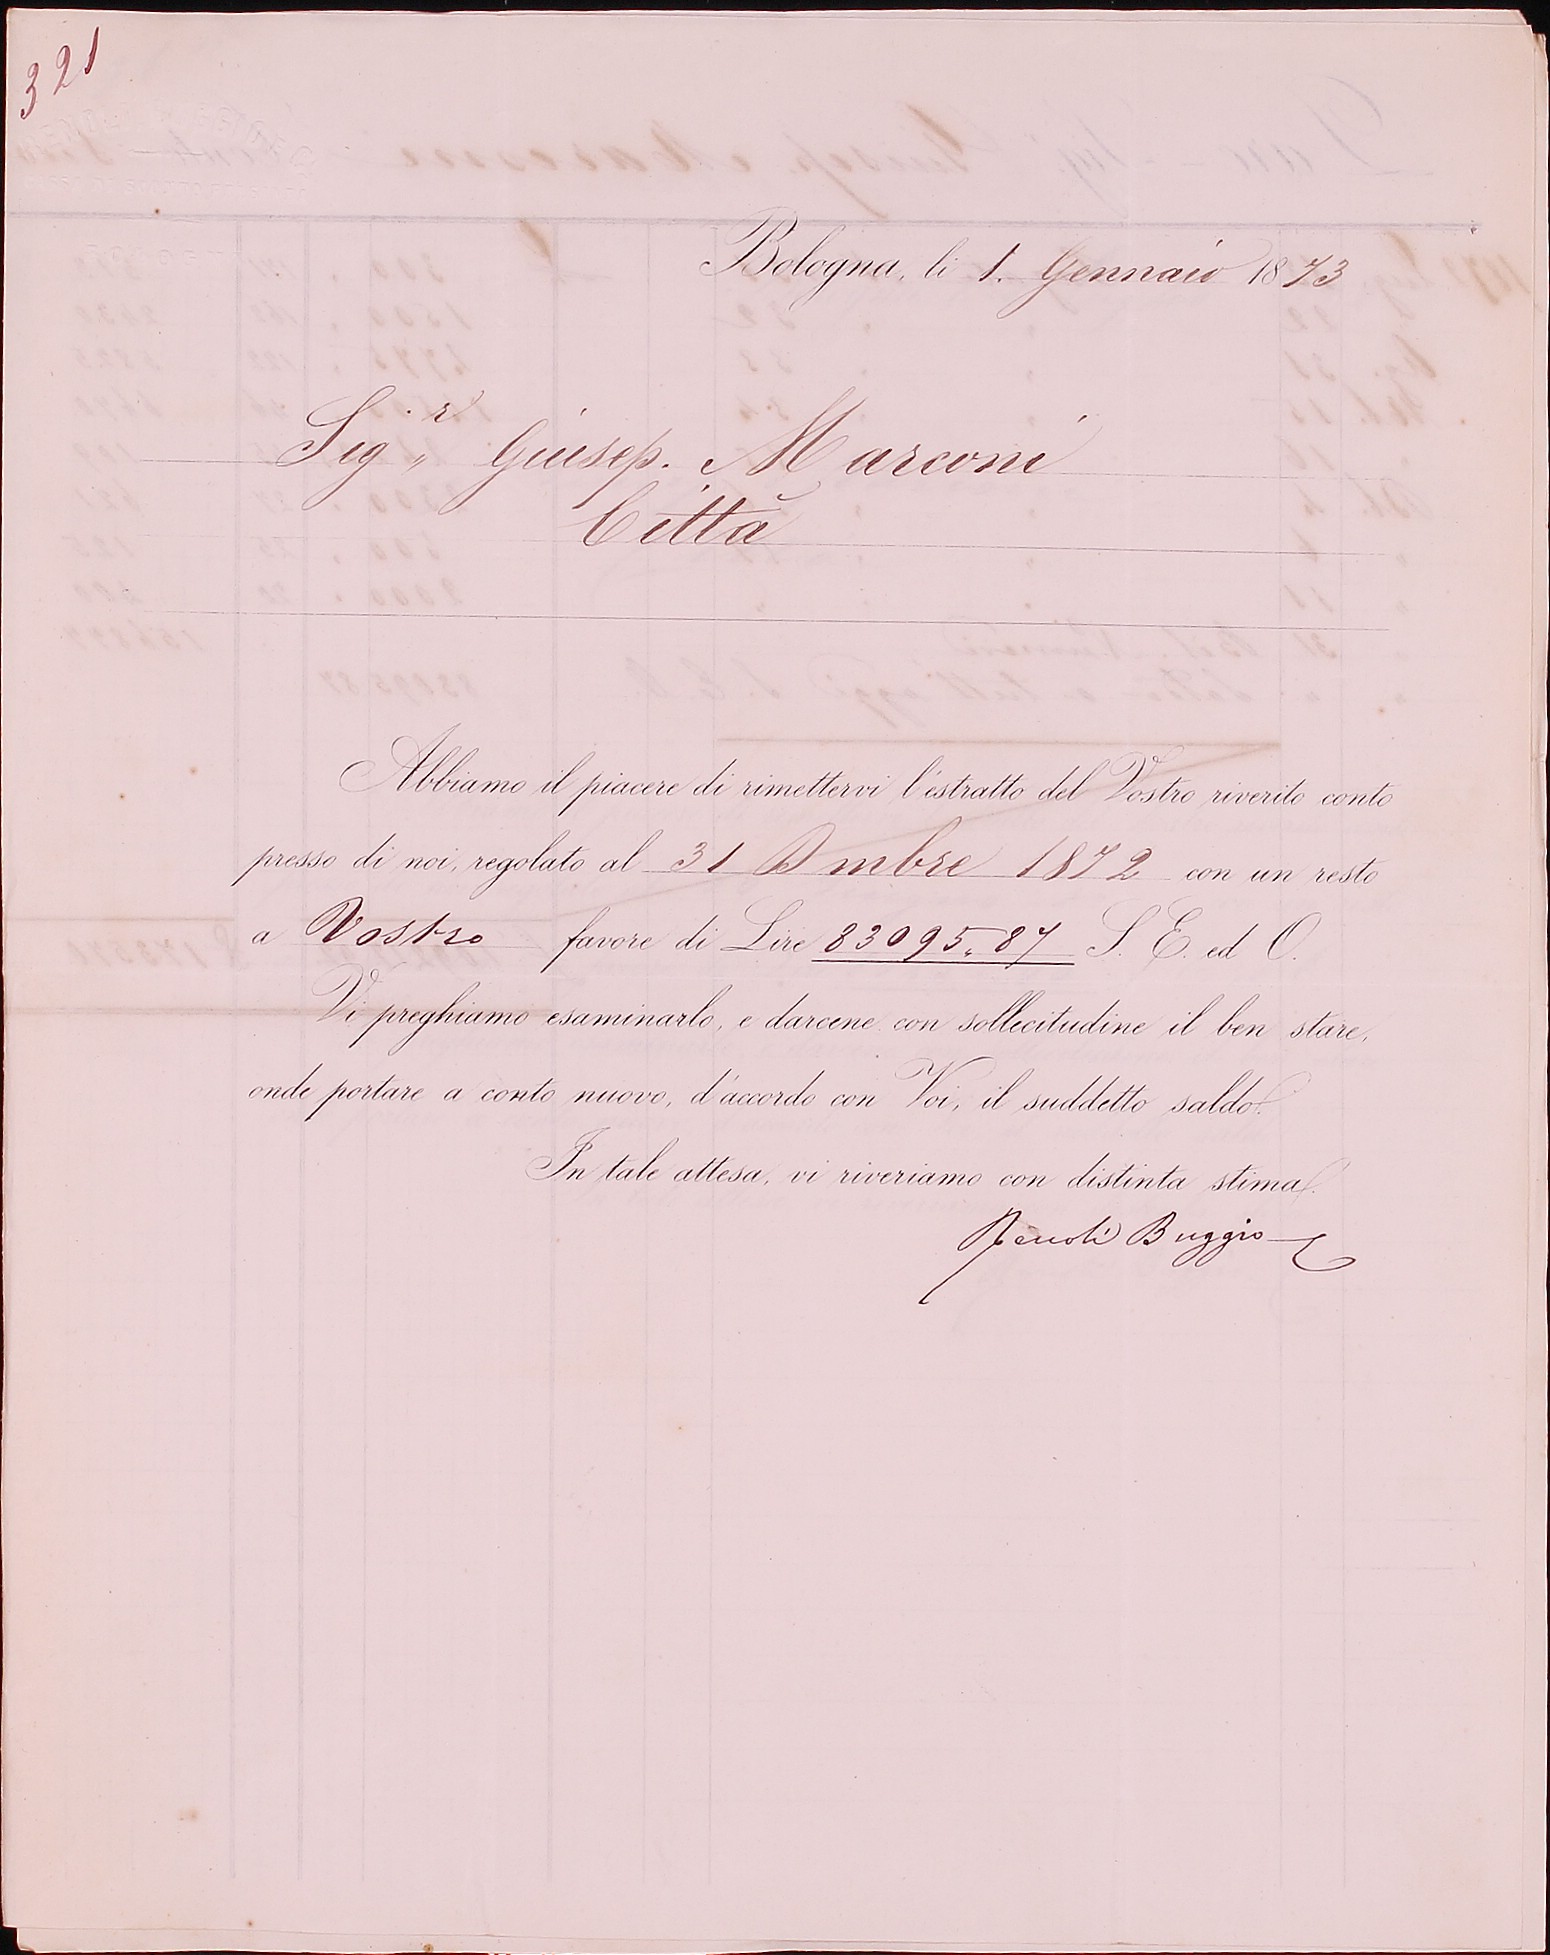 321
Bologna, li 1. Gennaio 1873
Sig.r Giusep. Marconi
Città
Abbiamo il piacere di rimettervi l'estratto del Vostro riverito conto
presso di noi, regolato al 31 Dmbre 1872 con un resto
a Vostro favore di Lire 83095.87 S. E. ed O.
Vi preghiamo esaminarlo, e darcene con sollecitudine il ben stare,
onde portare a conto nuovo, d'accordo con Voi, il suddetto saldo.
In tale attesa, vi riveriamo con distinta stima.
Renoli Buggio